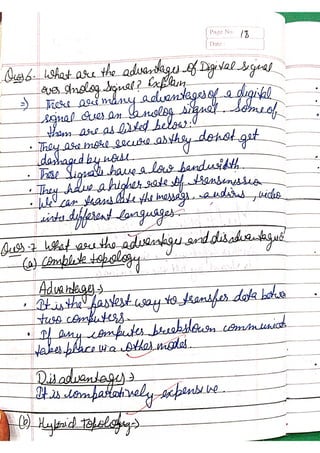 Page No. 18
Date
Ques 6. What are the advantages of Digital Signal
over Analog Signal? Explain
=) There are many advantages of a digital
signal over an analog signal. Some of
them are as listed below:
• They are more secure as they do not get
damaged by noise.
• These signals have a low bandwidth.
• They have a higher rate of transmission
• We can translate the message, audios, video
into different languages.
Ques-7 What are the advantages and disadvantages
(a) Complete topology
Advantages →
• It is the fastest way to transfer data betwn
two computers.
• If any computer breakdown communicat
takes place via other nodes.
Disadvantages →
It is comparatively expensive.
(b) Hybrid Topology →